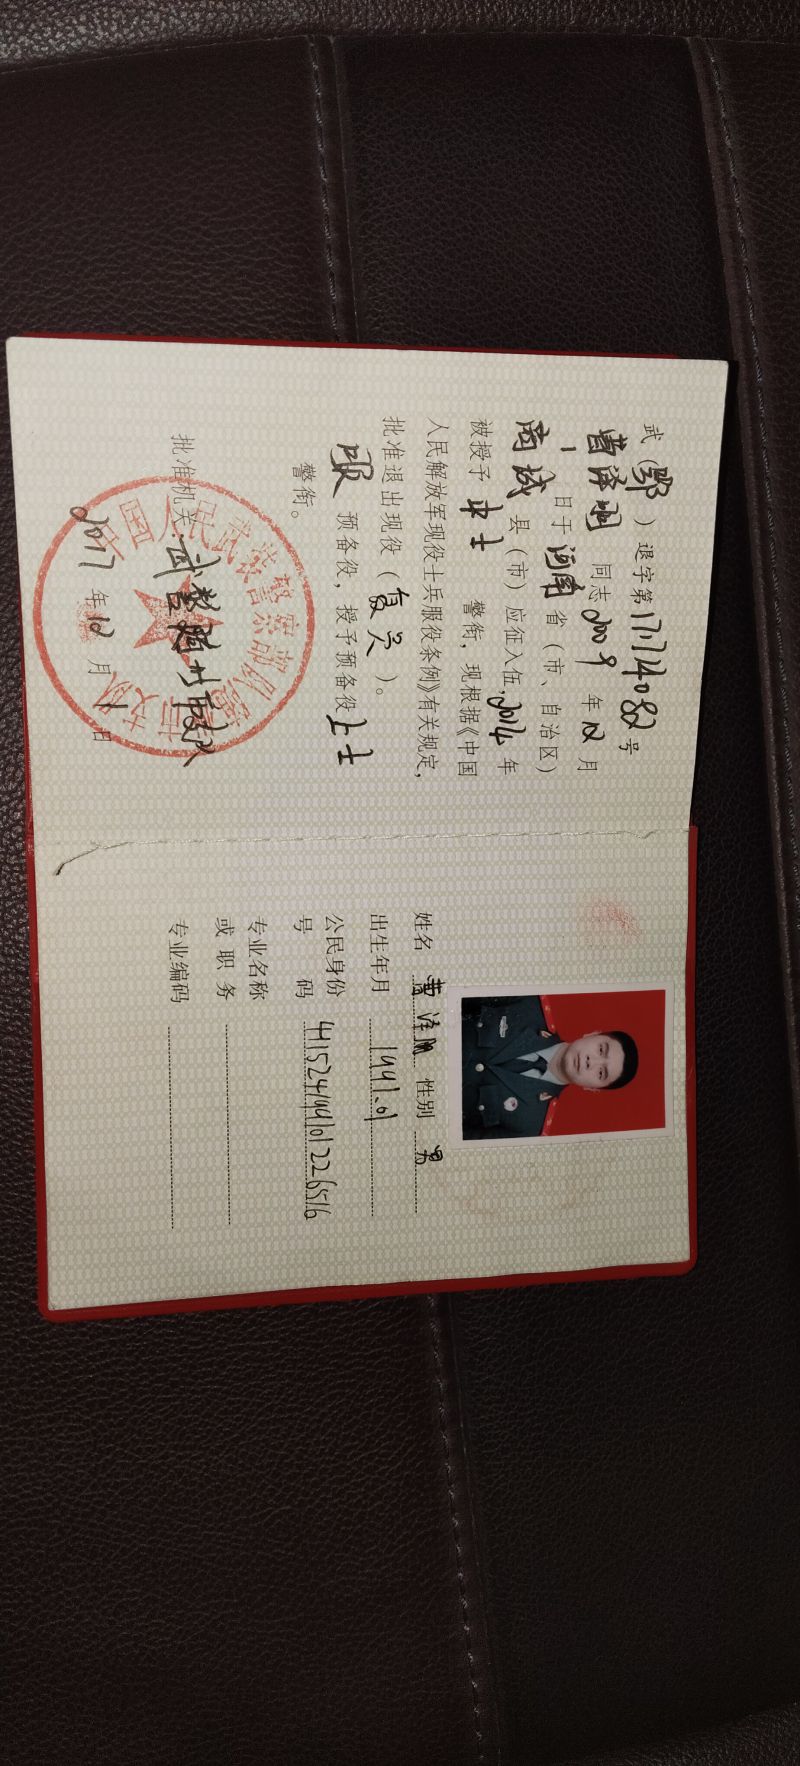 武（鄂）退字第17174082号
曹泽 同志2009年12月
1日于河南省（市、自治区）
商城县（市）应征入伍，2014年
被授予中士警衔，现根据《中国
人民解放军现役士兵服役条例》有关规定，
批准退出现役（复员）。
服预备役，授予预备役上士
警衔。
批准机关 武警 州市支队
2017年12月1日
中国人民武装警察部队 市支队
姓名 曹泽 性别 男
出生年月 1991.01
公民身份号码
专业名称或职务
专业编码